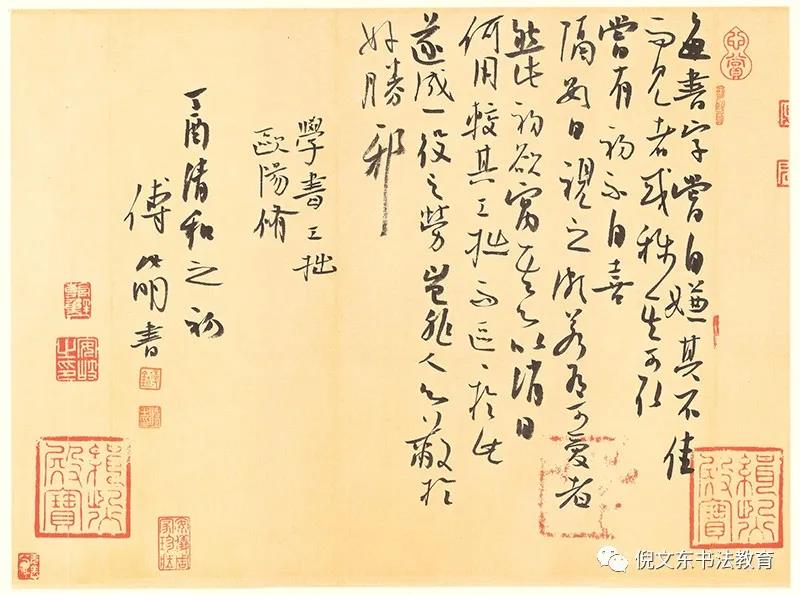 每書字嘗自嫌其不佳
而見者或稱其可取
嘗有初不自喜
隔數日視之漸若有可愛者
然此初欲寓其心以消日
何用較其工拙而區、於此
遂成一役之勞豈非人心蔽於
好勝邪
學書工拙
歐陽脩
丁酉清和之初
傅明書
心賞
緝熙殿寶
緝熙殿寶
安岐之印
倪文东书法教育